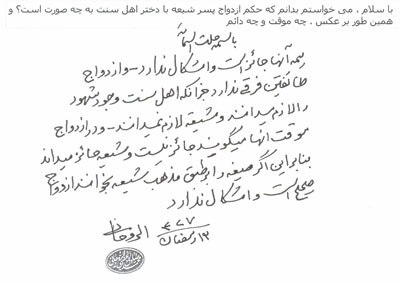 با سلام ، می خواستم بدانم که حکم ازدواج پسر شیعه با دختر اهل سنت به چه صورت است؟ و
همین طور بر عکس . چه موقت و چه دائم
باسمه جلت اسمائه
همه آنها جائز است و اشکال ندارد - و ازدواج
طائفتین فرقی ندارد جز آنکه اهل سنت وجود شهود
را لازم میدانند و شیعه لازم نمیدانند - و در ازدواج
موقت آنها میگویند جائز نیست و شیعه جائز میداند
بنابراین اگر صیغه را بر طبق مذهب شیعه بخوانند ازدواج
صحیح است و اشکال ندارد
۲۷
۱۳ رمضان الروحانی